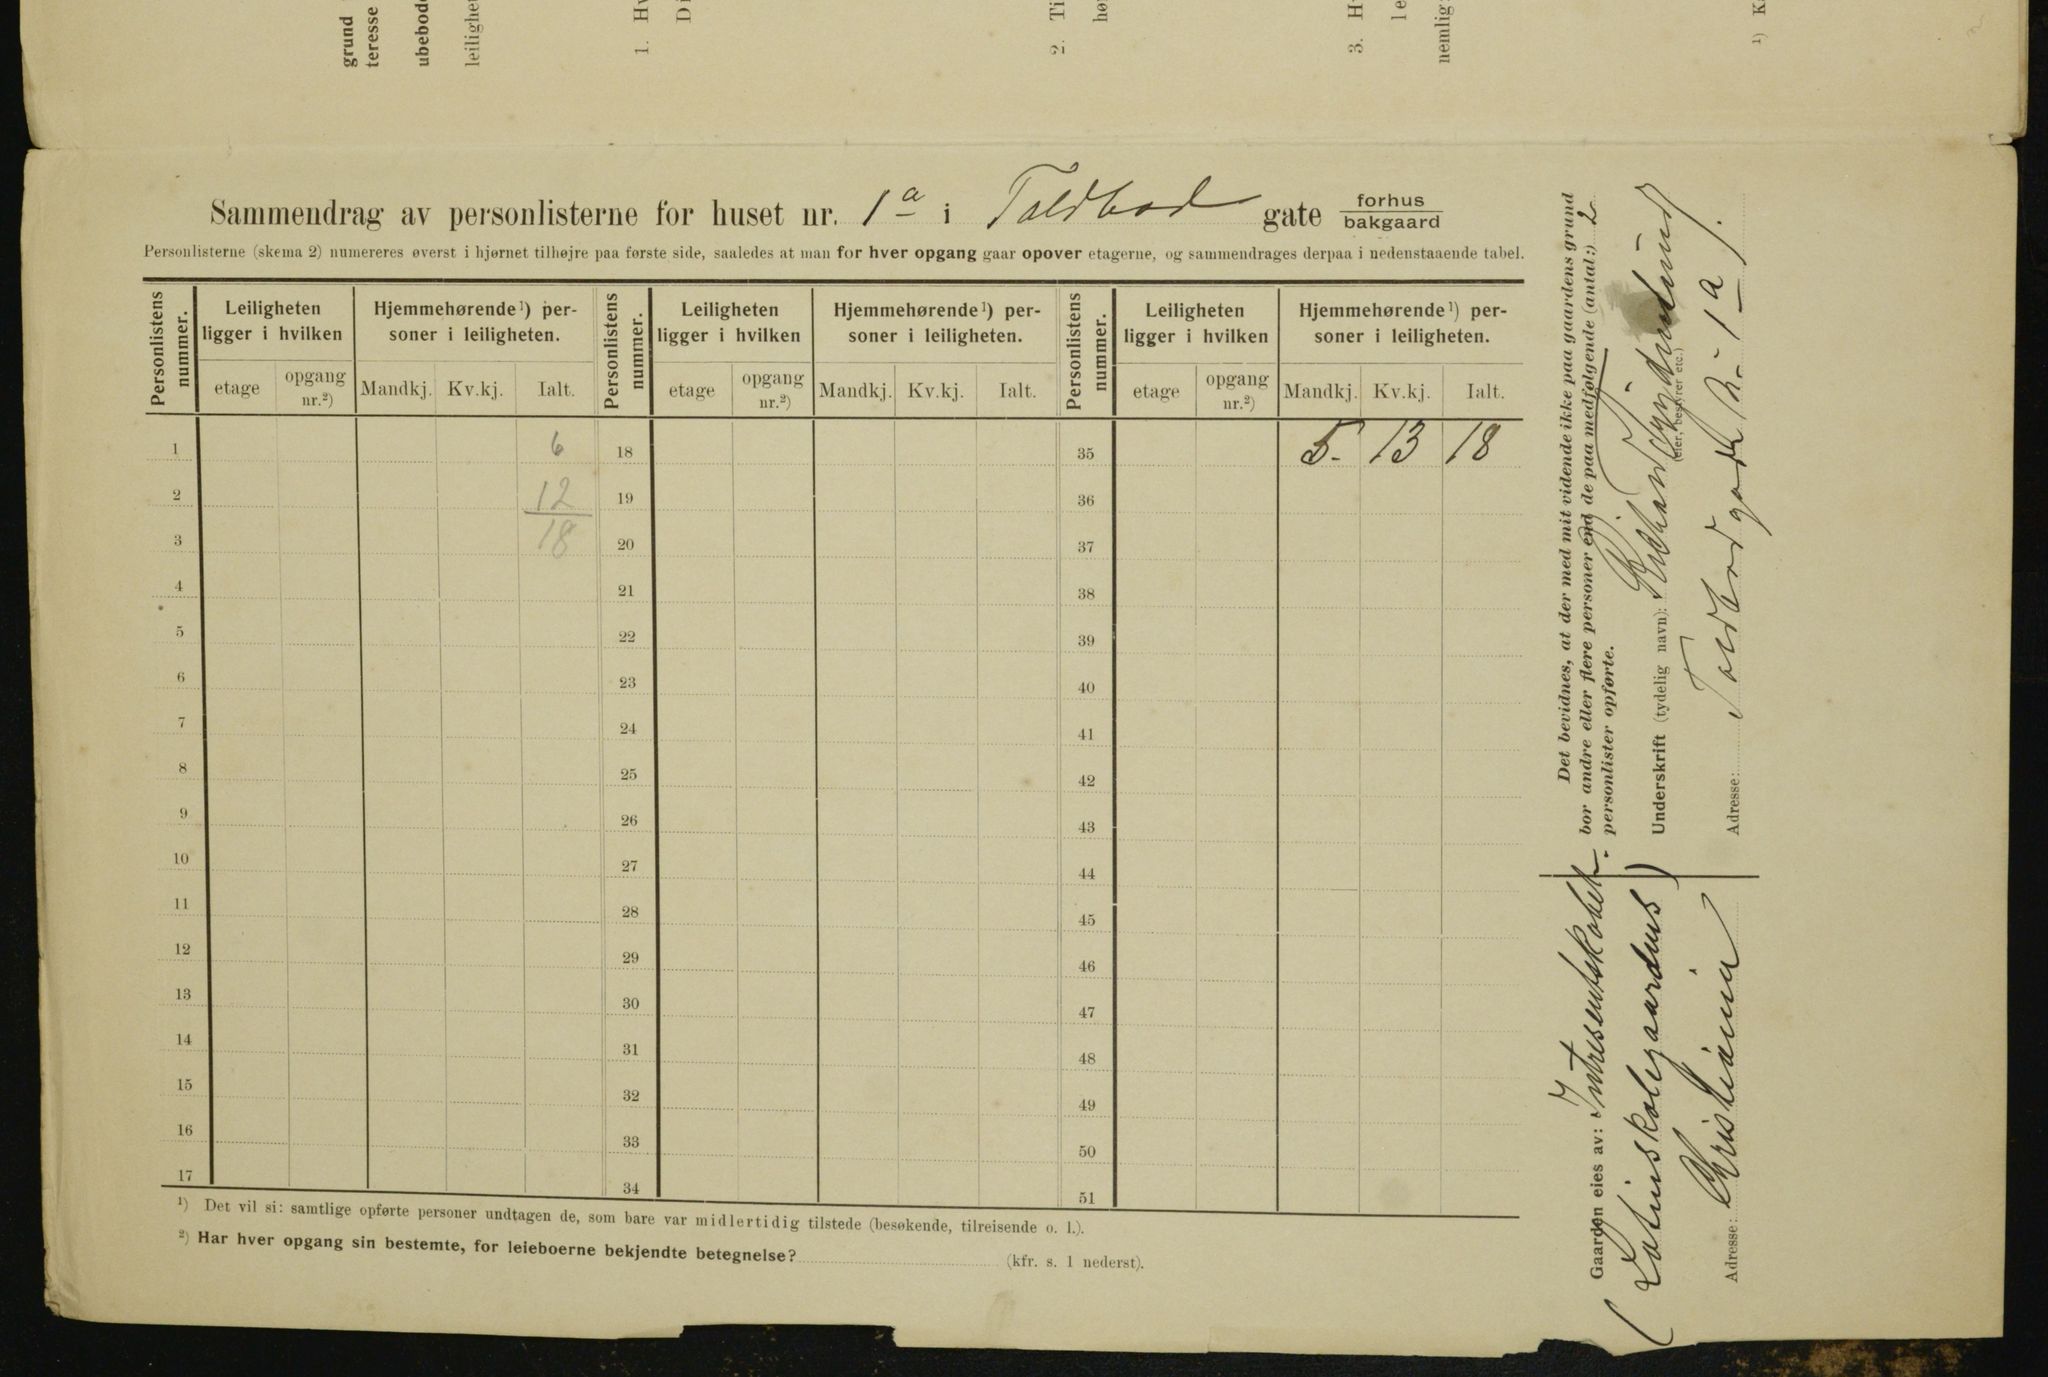 grund
teresse
ubebod
leilighe
1. Hv
D
2. Ti
hø
3. H
le
nemlig:
¹) K
Sammendrag av personlisterne for huset nr. 1a i Toldbod gate forhus
bakgaard
Personlisterne (skema 2) numereres øverst i hjørnet tilhøjre paa første side, saaledes at man for hver opgang gaar opover etagerne, og sammendrages derpaa i nedenstaaende tabel.
Personlistens nummer. Leiligheten ligger i hvilken Hjemmehørende ¹) personer i leiligheten. Personlistens nummer. Leiligheten ligger i hvilken Hjemmehørende ¹) personer i leiligheten. Personlistens nummer. Leiligheten ligger i hvilken Hjemmehørende ¹) personer i leiligheten.
etage opgang nr.²) Mandkj. Kv.kj. Ialt. etage opgang nr.²) Mandkj. Kv.kj. Ialt. etage opgang nr.²) Mandkj. Kv.kj. Ialt.
1 6 18 35 5. 13 18
2 12 19 36
3 18 20 37
4 21 38
5 22 39
6 23 40
7 24 41
8 25 42
9 26 43
10 27 44
11 28 45
12 29 46
13 30 47
14 31 48
15 32 49
16 33 50
17 34 51
¹) Det vil si: samtlige opførte personer undtagen de, som bare var midlertidig tilstede (besøkende, tilreisende o. l.).
²) Har hver opgang sin bestemte, for leieboerne bekjendte betegnelse? (kfr. s. 1 nederst).
Det bevidnes, at der med mit vidende ikke paa gaardens grund
bor andre eller flere personer end de paa medfølgende (antal:) 2
personlister opførte.
Underskrift (tydelig navn): Richard
(eier, bestyrer etc.)
Adresse: Toldbodgade No 1a
Gaarden eies av: Intresentskabet
(Latinskolegaardens)
Adresse: Christiania